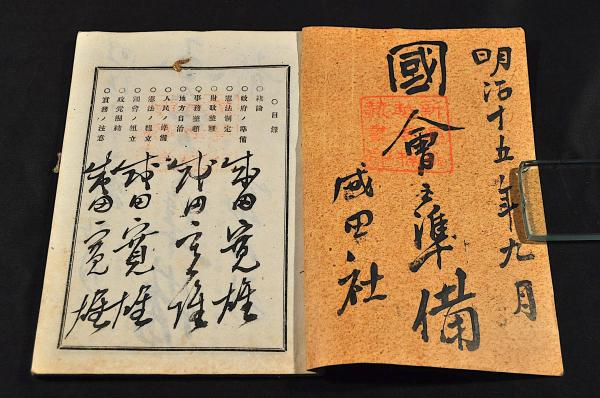 明治十五年九月
國會之準備
成田社
○目録
○緒論
○政府ノ準備
○憲法制定
○財政整理
○事務整頓
○地方自治
○人民ノ準備
○憲法ノ組立
○國會ノ組立
○政党團結
○實務ノ注意
成田寛雄
成田寛雄
成田寛雄
成田寛雄